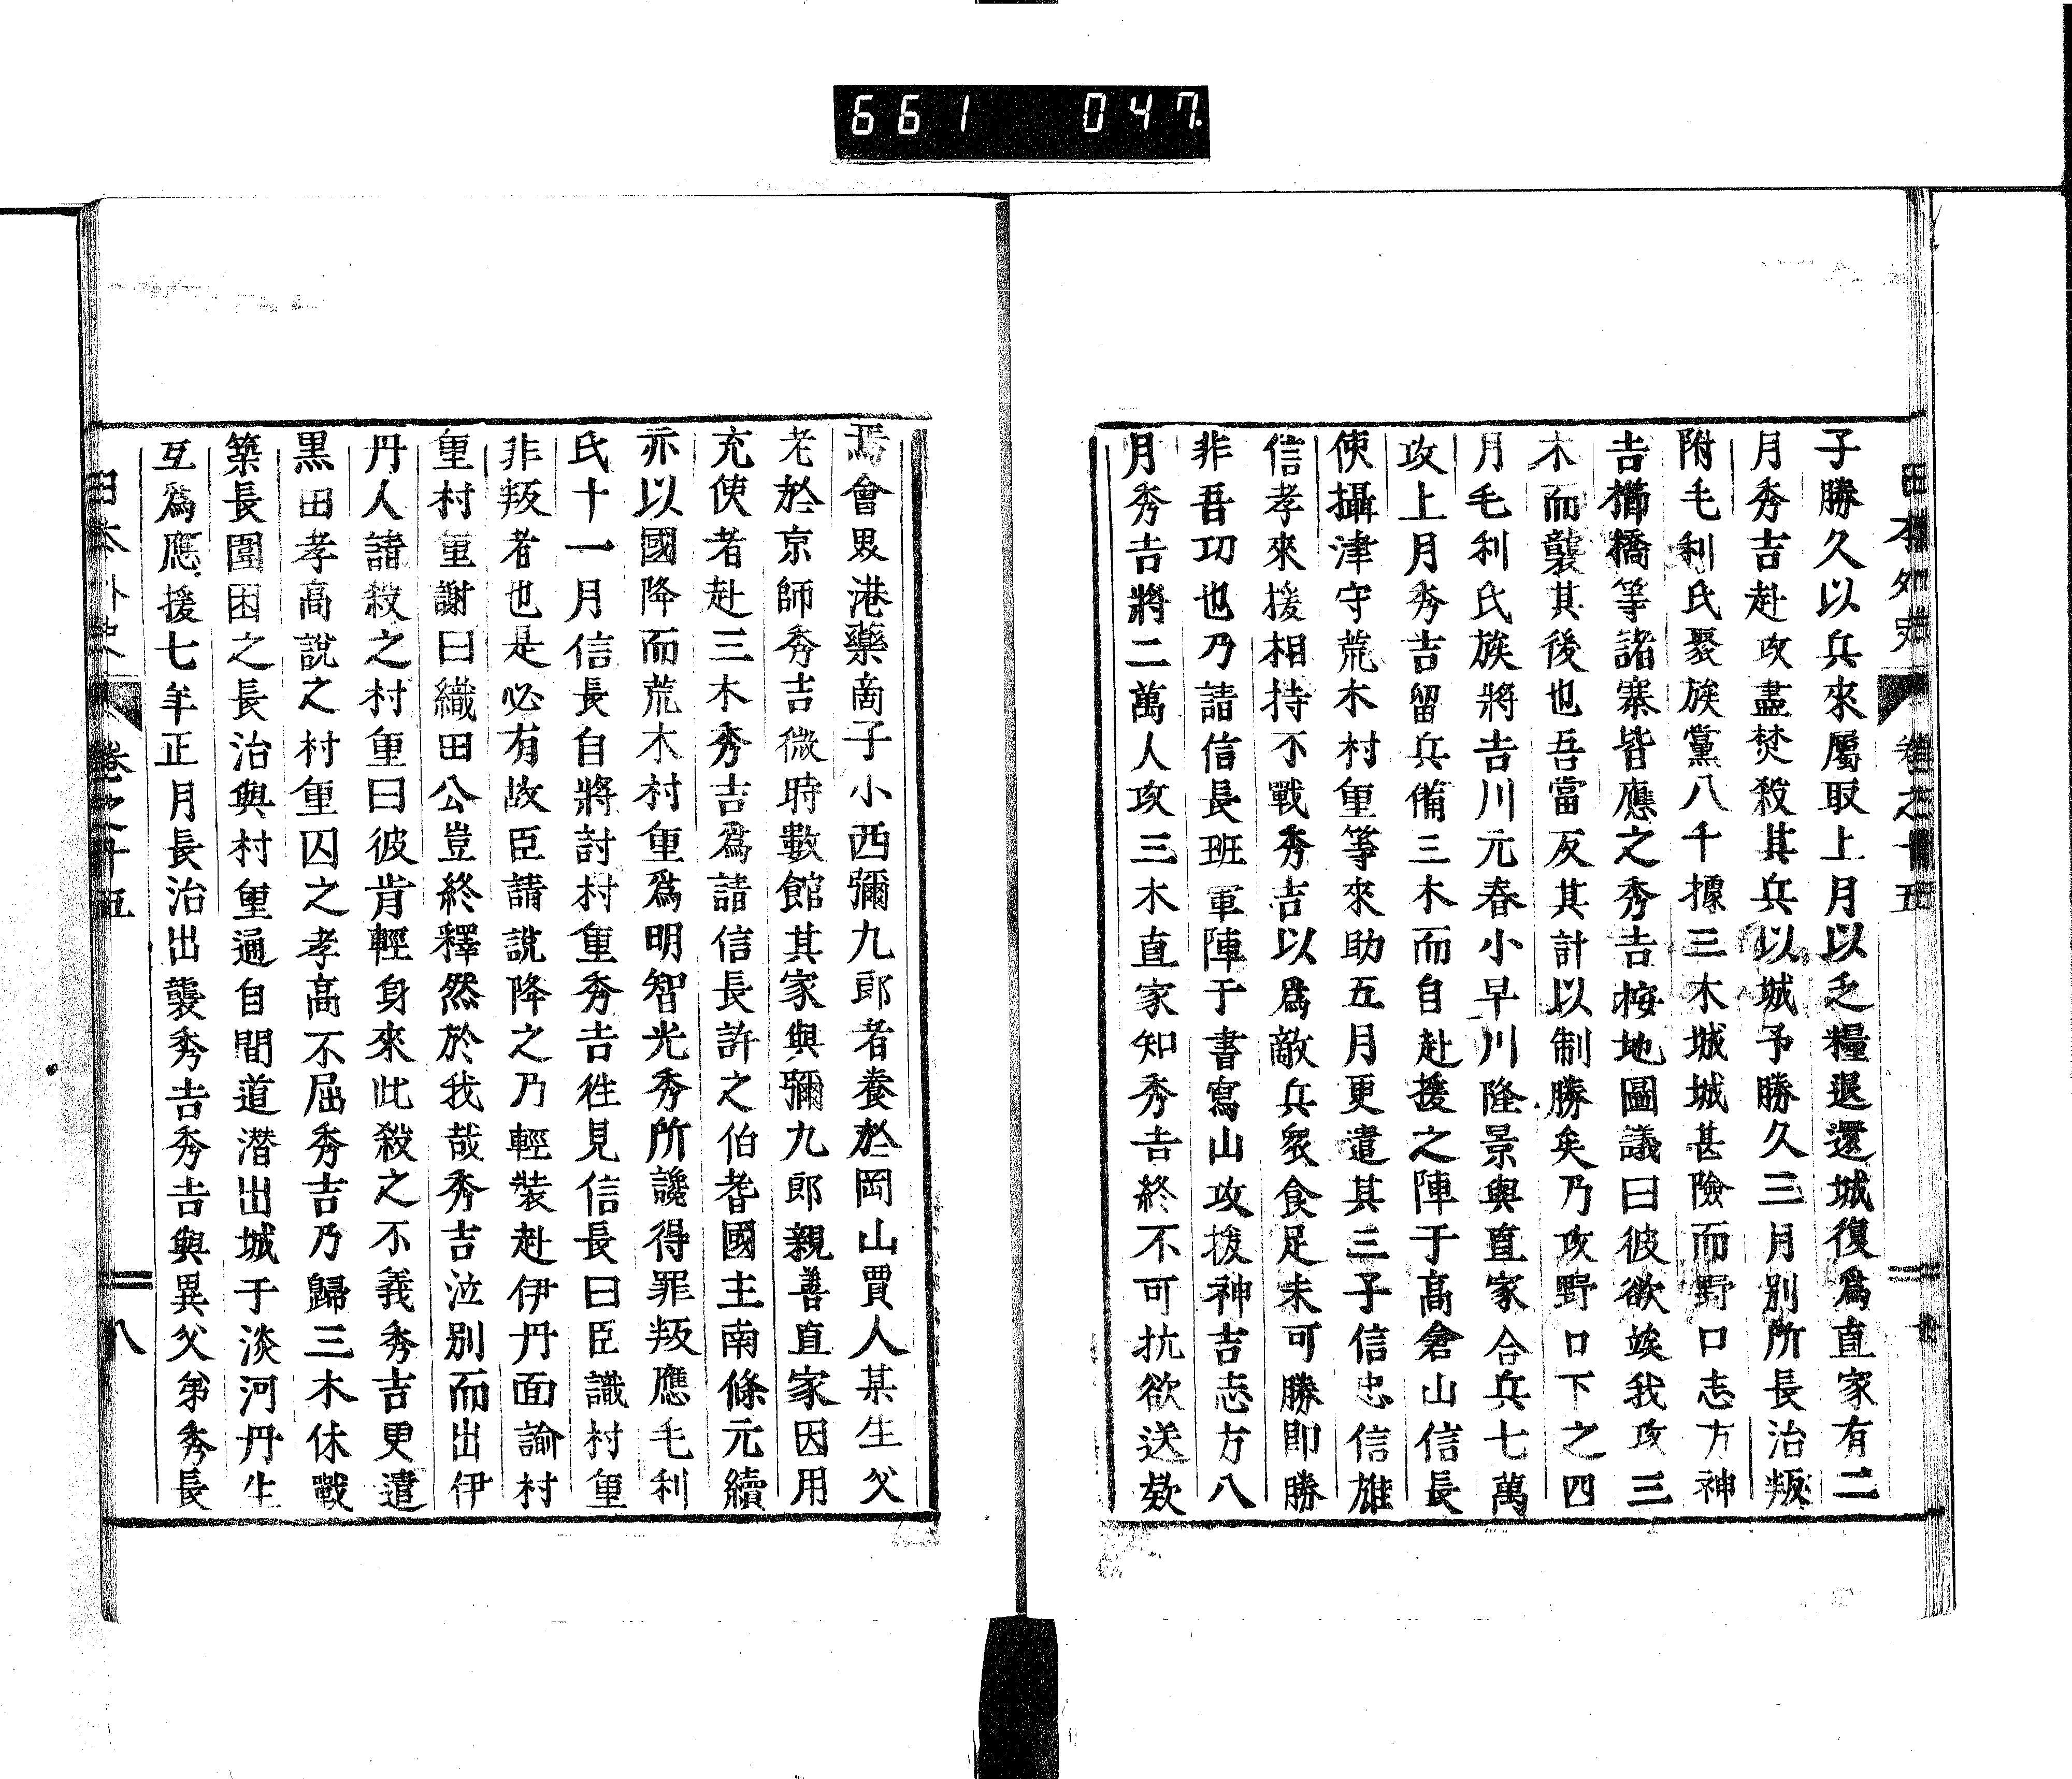 661 047
日本外史 卷之十五 七
子勝久以兵來屬取上月以乏糧退還城復爲直家有二
月秀吉赴攻盡焚殺其兵以城予勝久三月別所長治叛
附毛利氏聚族黨八千據三木城城甚險而野口志方神
吉櫛橋等諸寨皆應之秀吉按地圖議曰彼欲竢我攻三
木而襲其後也吾當反其計以制勝矣乃攻野口下之四
月毛利氏族將吉川元春小早川隆景與直家合兵七萬
攻上月秀吉留兵備三木而自赴援之陣于高倉山信長
使攝津守荒木村重等來助五月更遣其三子信忠信雄
信孝來援相持不戰秀吉以爲敵兵衆食足未可勝即勝
非吾功也乃請信長班軍陣于書寫山攻拔神吉志方八
月秀吉將二萬人攻三木直家知秀吉終不可抗欲送欵
焉會畏港藥啇子小西彌九郎者養於岡山賈人某生父
老於京師秀吉微時數館其家與彌九郎親善直家因用
充使者赴三木秀吉爲請信長許之伯耆國主南條元續
亦以國降而荒木村重爲明智光秀所讒得罪叛應毛利
氏十一月信長自將討村重秀吉徃見信長曰臣識村重
非叛者也是必有故臣請說降之乃輕裝赴伊丹面諭村
重村重謝曰織田公豈終釋然於我哉秀吉泣別而出伊
丹人請殺之村重曰彼肯輕身來此殺之不義秀吉更遣
黑田孝高說之村重囚之孝高不屈秀吉乃歸三木休戰
築長圍困之長治與村重通自間道潜出城于淡河丹生
互爲應援七年正月長治出襲秀吉秀吉與異父弟秀長
日本外史 卷之十五 八